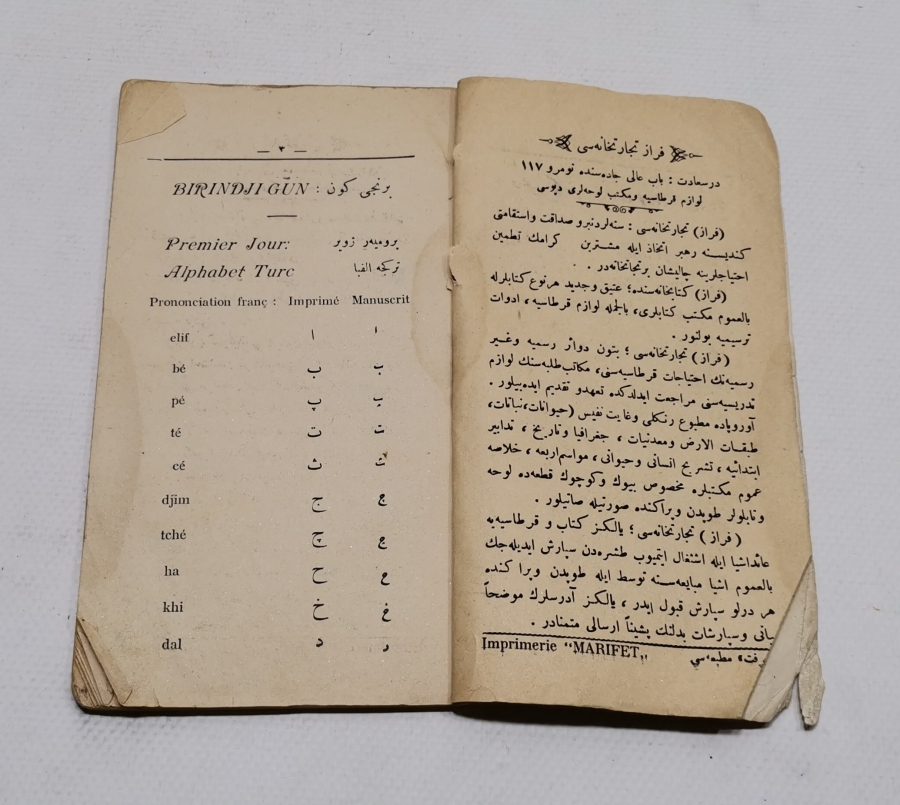 — ٣ —
BIRINDJI GÜN : برنجی كون
Premier Jour: پرومیەر ژویر
Alphabet Turc تركجه الفبا
Prononciation franç : Imprimé Manuscrit
elif ا ا
bé ب ب
pé پ پ
té ت ت
cé ث ث
djim ج ج
tché چ چ
ha ح ح
khi خ خ
dal د د
فراز تجارتخانه‌سی
درسعادت : باب عالی جاده‌سنده نومرو ١١٧
لوازم قرطاسیه ومكتب لوحه‌لری دپوسی
(فراز) تجارتخانه‌سی : سنه‌لردنبرو صداقت واستقامتی
كندیسنه رهبر اتخاذ ایله مشترین كرامك تطمین
احتیاجلرینه چالیشان برتجاتخانه‌در .
(فراز) كتابخانه‌سنده؛ عتیق وجدید هرنوع كتابلرله
بالعموم مكتب كتابلری، بالجمله لوازم قرطاسیه ، ادوات
ترسیمیه بولنور .
(فراز) تجارتخانه‌سی ؛ بتون دوائر رسمیه وغیر
رسمیه‌نك احتیاجات قرطاسیه‌سنی، مكاتب‌طلبه‌سنك لوازم
تدریسیه‌سنی مراجعت ایدلدكده تعهدو تقدیم ایده‌بیلور .
آوروپاده مطبوع رنكلی وغایت نفیس (حیوانات،نباتات،
طبقات الارض ومعدنیات ، جغرافیا وتاریخ ، تدابیر
ابتدائیه ، تشریح انسانی وحیوانی ، مواسم‌اربعه ، خلاصه
عموم مكتبلره مخصوص بیوك وكوچوك قطعه‌ده لوحه
وتابلولر طوپدن وپراكنده صورتیله صاتیلور .
(فراز) تجارتخانه‌سی ؛ یالكز كتاب و قرطاسیه‌یه
عائداشیا ایله اشتغال ایتمیوب طشره‌دن سپارش ایدیله‌جك
بالعموم اشیا مبایعه‌سنه توسط ایله طوپدن وپراكنده
هر درلو سپارش قبول ایدر ، یالكز آدرسلرك موضحاً
یانی وسپارشات بدلنك پشیناً ارسالی متمنادر .
Imprimerie "MARIFET„ مطبعه‌سی